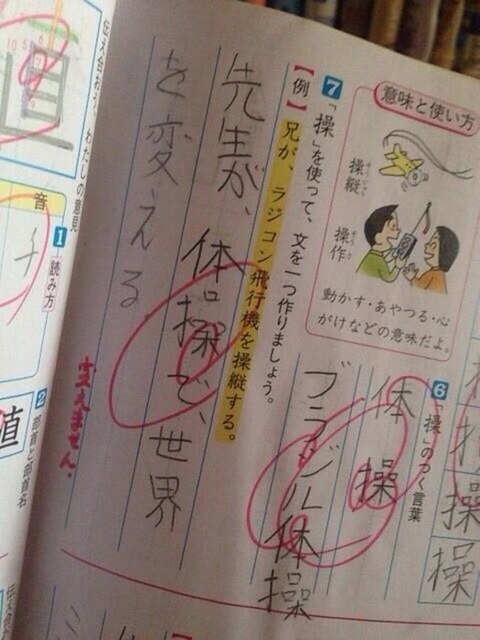 操
操
操
意味と使い方
操縦
そうじゅう
操作
そうさ
動かす・あやつる・心
がけなどの意味だよ。
6 「操」のつく言葉
体操
ブラジル体操
7 「操」を使って、文を一つ作りましょう。
【例】兄が、ラジコン飛行機を操縦する。
先生が、体操で、世界
を変える。
変えません。
伝え合おう、わたしの意見
直
音
1 読み方
チ
2 部首と部首名
値